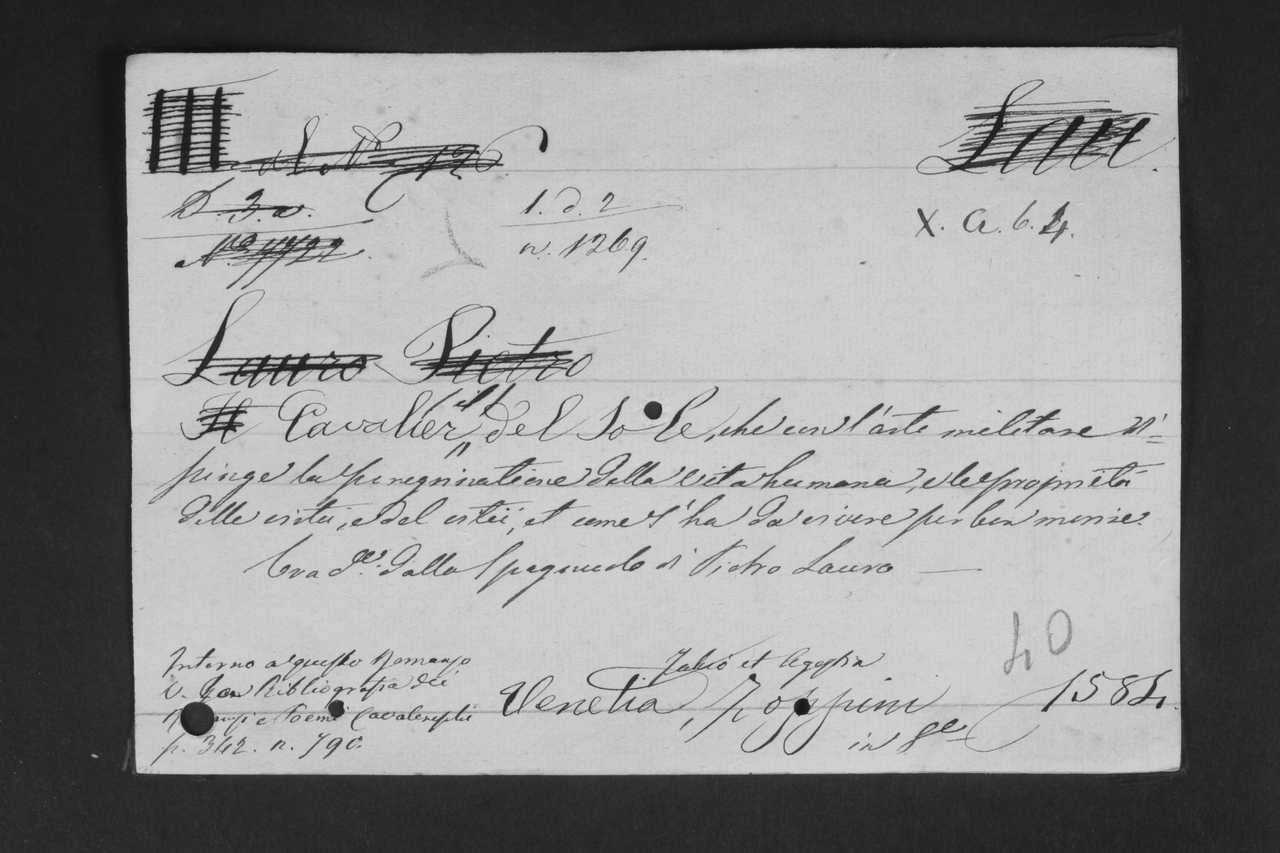 Lau.
126
D. 3. a.
1. d. 2
X. a. 6. 4.
n. 1269.
Lauro Pietro
Il Cavallier, il, del Sole, che con l'arte militare di=
pinge la peregrinatione della vita humana, e le proprietà
delle virtù, e del vitii, et come s' ha da vivere per ben morire.
Trad.e dallo Spagnuolo di Pietro Lauro —
40
Intorno a questo Romanzo
V. Bibliografia dei
Romanzi e Poemi Cavallereschi
p. 342. n. 790.
Fabio et Agostin
Venetia, Zoppini 1584.
in 8e